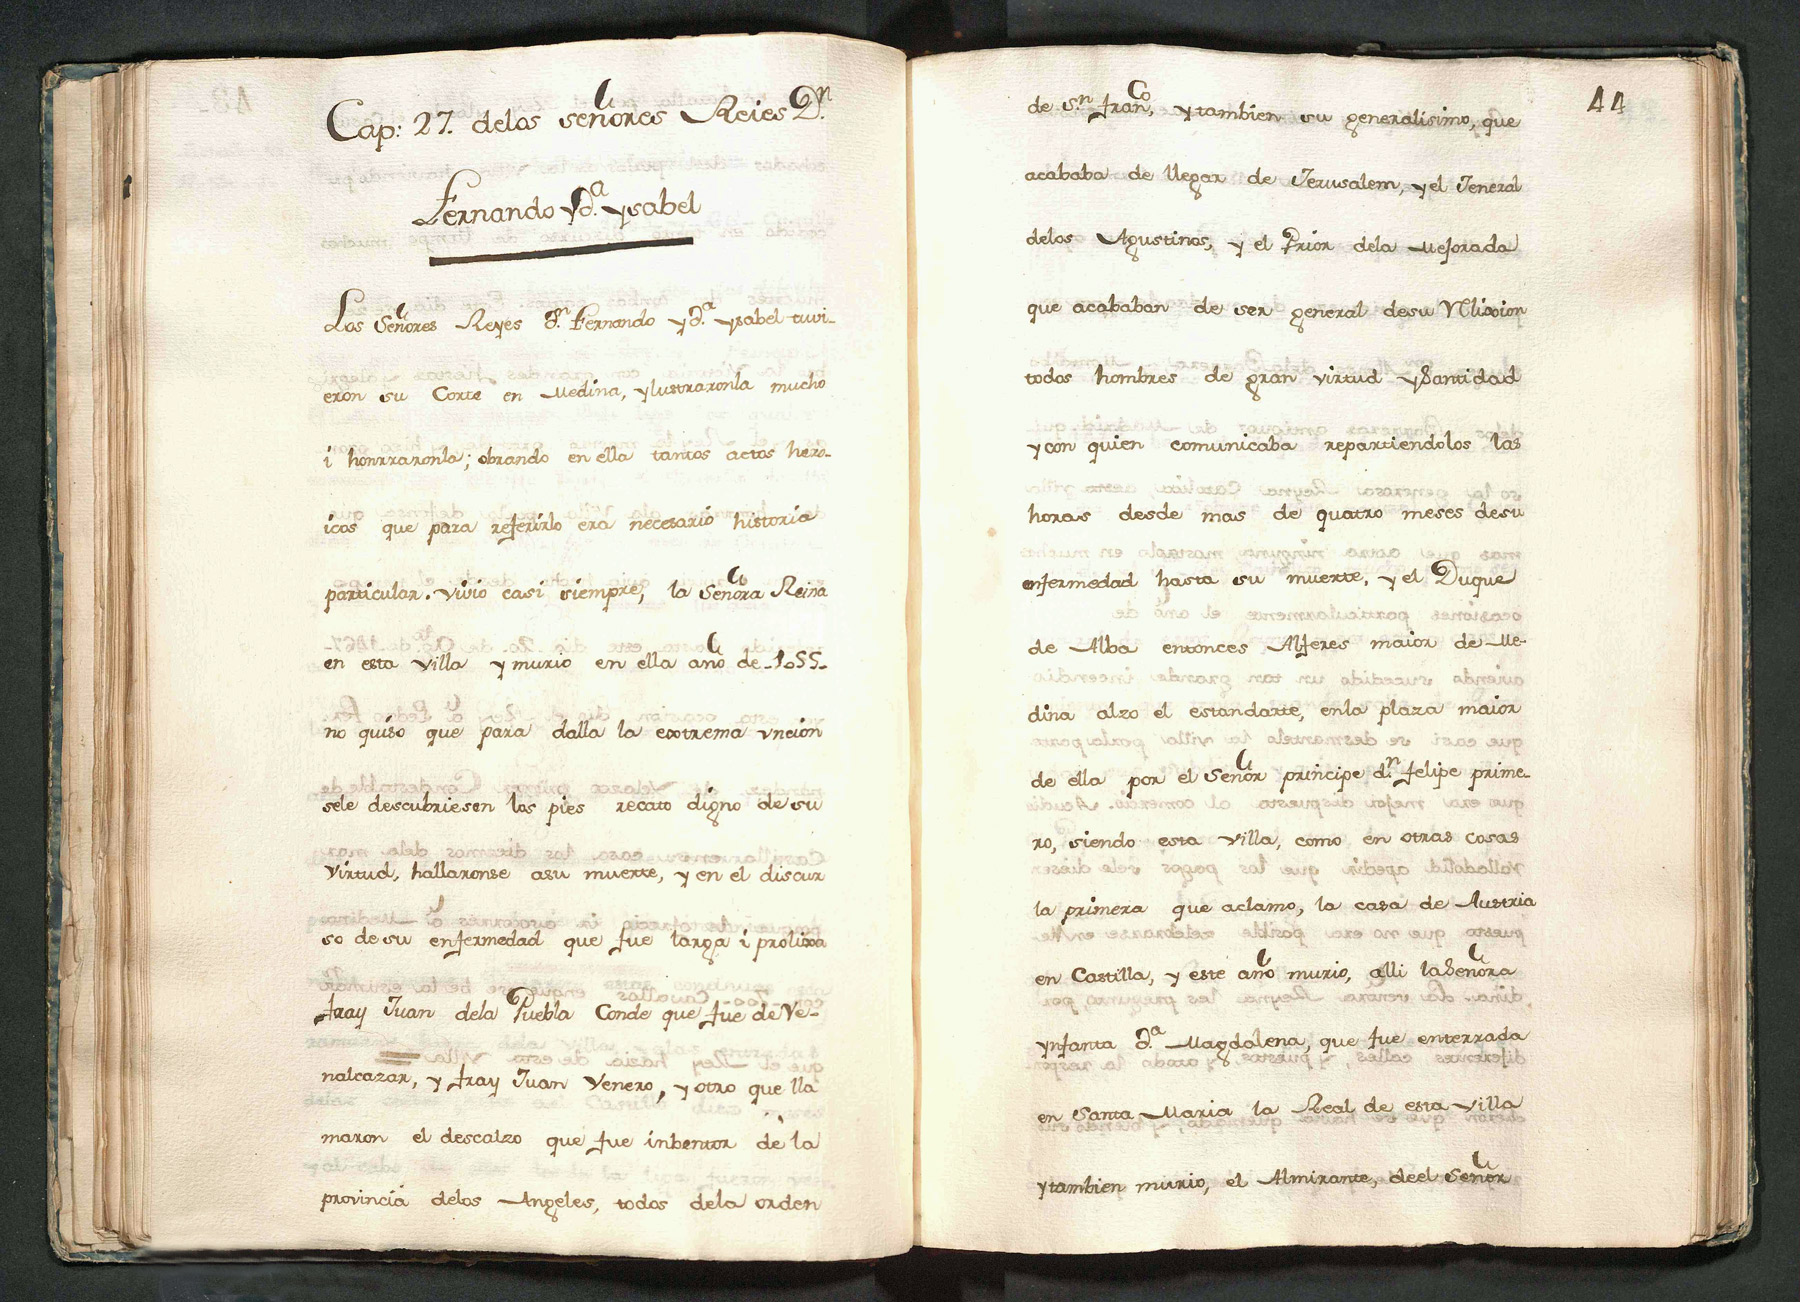 Cap: 27. delos señores Reies D.n
Fernando y d.a ysabel
Los Señores Reyes d.n Fernando y d.a ysabel tuvi-
eron su Corte en Medina, ylustraronla mucho
i honrraronla; obrando en ella tantos actos hero-
icos que para referirlo era necesario historia
particular. vivio casi siempre, la Señora Reina
en esta villa y murio en ella año de -1055-
no quiso que para dalla la extrema vncion
sele descubriesen los pies recato digno de su
virtud, hallaronse asu muerte, y en el discur
so de su enfermedad que fue larga i prolixa
fray Juan dela Puebla Conde que fue de Ve-
nalcazar, y fray Juan Venero, y otro que lla
maron el descalzo que fue inbentor de la
provincia delos Angeles, todos dela orden
44
de S.n fran.co, ytambien su generalisimo, que
acababa de llegar de Jerusalem, y el Jeneral
delos Agustinos, y el Prior dela Mejorada
que acababan de ser general desu Rlixion
todos hombres de gran virtud ySantidad
ycon quien comunicaba repartiendolos las
horas desde mas de quatro meses desu
enfermedad hasta su muerte, y el Duque
de Alba entonces Alferes maior de Me-
dina alzo el estandarte, enla plaza maior
de ella por el Señor principe d.n felipe prime-
ro, siendo esta villa, como en otras cosas
la primera que aclamo, la casa de Austria
en Castilla, y este año murio, alli laSeñora
ynfanta d.a Magdalena, que fue enterrada
en Santa Maria la Real de esta villa
ytambien murio, el Almirante, deel Señor